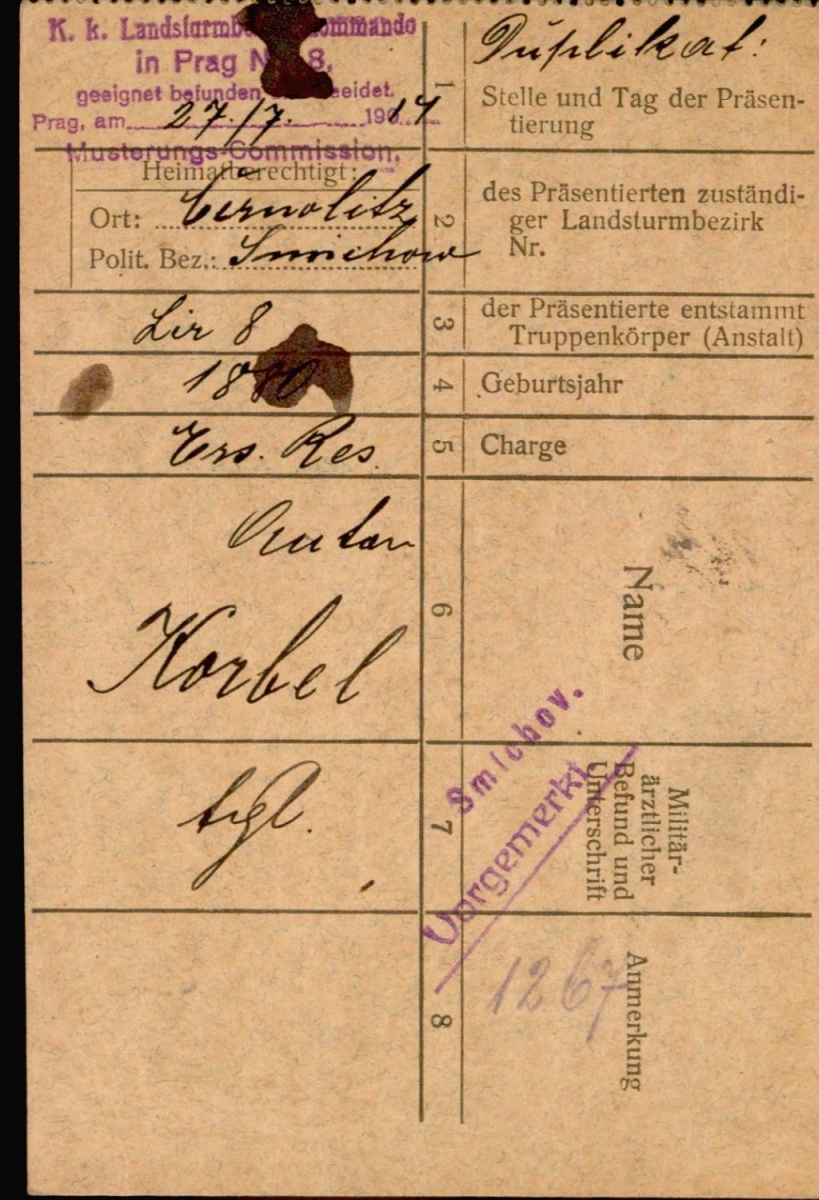 Duplikat:
K. k. Landsturmb ommando
in Prag N 8.
geeignet befunden, eeidet.
Prag, am 27./7. 190 14
Musterungs-Commission.
1
Stelle und Tag der Präsen-
tierung
Heimatberechtigt:
Ort: Černolitz
Polit. Bez.: Smichow
2
des Präsentierten zuständi-
ger Landsturmbezirk
Nr.
Lir 8
3
der Präsentierte entstammt
Truppenkörper (Anstalt)
1880
4
Geburtsjahr
Ers. Res.
5
Charge
Anton
Korbel
6
Name
tgl.
7
Militär-
ärztlicher
Befund und
Unterschrift
Smichov.
Vorgemerkt
8
Anmerkung
1267